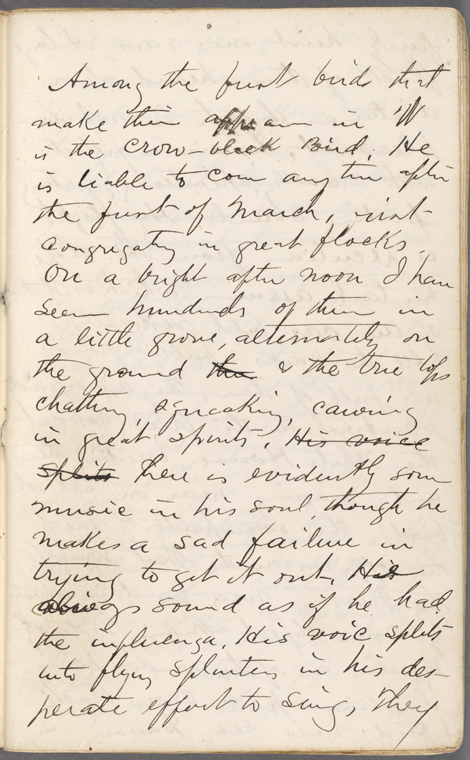 Among the first birds that
make their appearance in
is the crow-black Bird. He
is liable to come any time after
the first of March,
congregating in great flocks.
On a bright after noon I have
seen hundreds of them in
a little grove, alternately on
the ground the & the tree tops
chatting, squeaking, cawing
in great spirits. His voice
splits There is evidently some
music in his soul, though he
makes a sad failure in
trying to get it out. He
always sound as if he had
the influenza. His voice splits
into flying splinters in his des-
perate effort to sing, They